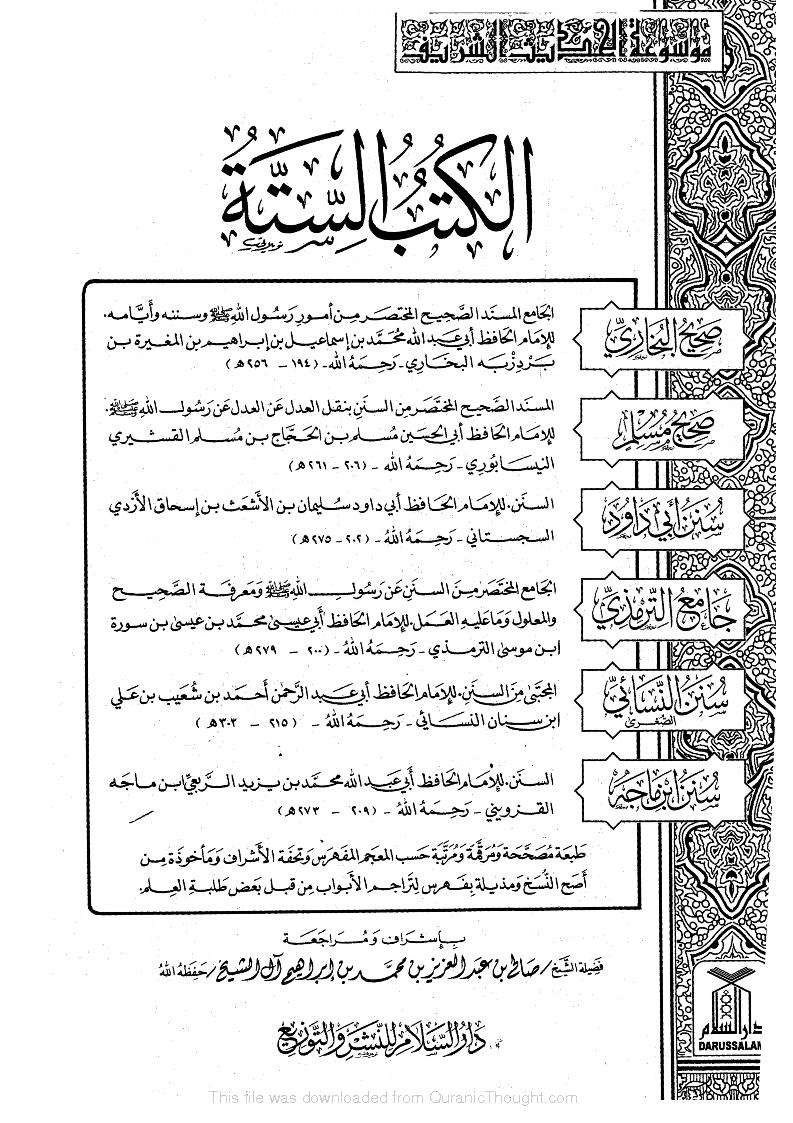 موسوعة الحديث الشريف
الكتب الستة
صحيح البخاري
الجامع المسند الصحيح المختصر من أمور رسول الله ﷺ وسننه وأيامه.
للإمام الحافظ أبي عبد الله محمد بن إسماعيل بن إبراهيم بن المغيرة بن
بردزبه البخاري - رحمه الله - (١٩٤ - ٢٥٦ هـ)
صحيح مسلم
المسند الصحيح المختصر من السنن بنقل العدل عن العدل عن رسول الله ﷺ.
للإمام الحافظ أبي الحسين مسلم بن الحجاج بن مسلم القشيري
النيسابوري - رحمه الله - (٢٠٦ - ٢٦١ هـ)
سنن أبي داود
السنن. للإمام الحافظ أبي داود سليمان بن الأشعث بن إسحاق الأزدي
السجستاني - رحمه الله - (٢٠٢ - ٢٧٥ هـ)
جامع الترمذي
الجامع المختصر من السنن عن رسول الله ﷺ ومعرفة الصحيح
والمعلول وما عليه العمل. للإمام الحافظ أبي عيسى محمد بن عيسى بن سورة
ابن موسى الترمذي - رحمه الله - (٢٠٠ - ٢٧٩ هـ)
سنن النسائي
الصغرى
المجتبى من السنن. للإمام الحافظ أبي عبد الرحمن أحمد بن شعيب بن علي
ابن سنان النسائي - رحمه الله - (٢١٥ - ٣٠٣ هـ)
سنن ابن ماجه
السنن. للإمام الحافظ أبي عبد الله محمد بن يزيد الربعي ابن ماجه
القزويني - رحمه الله - (٢٠٩ - ٢٧٣ هـ)
طبعة مصححة ومرقمة ومرتبة حسب المعجم المفهرس وتحفة الأشراف ومأخوذة من
أصح النسخ ومذيلة بفهرس لتراجم الأبواب من قبل بعض طلبة العلم.
بإشراف ومراجعة
فضيلة الشيخ / صالح بن عبد العزيز بن محمد بن إبراهيم آل الشيخ / حفظه الله
دار السلام للنشر والتوزيع
دار السلام
DARUSSALAM
This file was downloaded from QuranicThought.com